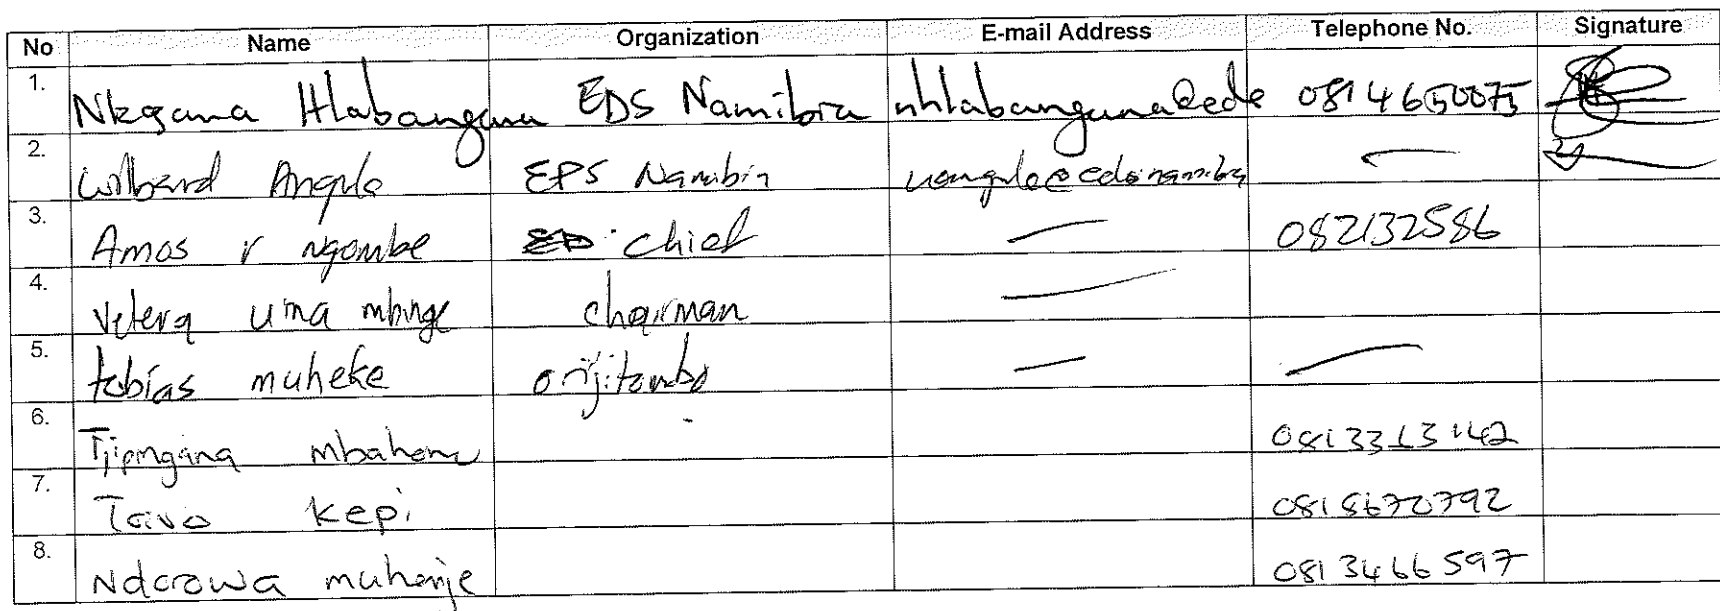 No Name Organization E-mail Address Telephone No. Signature
1. Nkgana Hlabangana EDS Namibia nhlabangana@eds 0814650075
2. Wilbard Angula EDS Namibia
3. Amos r ngombe chief 082132586
4. Vetera uma mbinge chairman
5. tobias muheke
6. 0813313142
7. Taivo kepi 0818670792
8. Ndarowa muhenje 0813466597